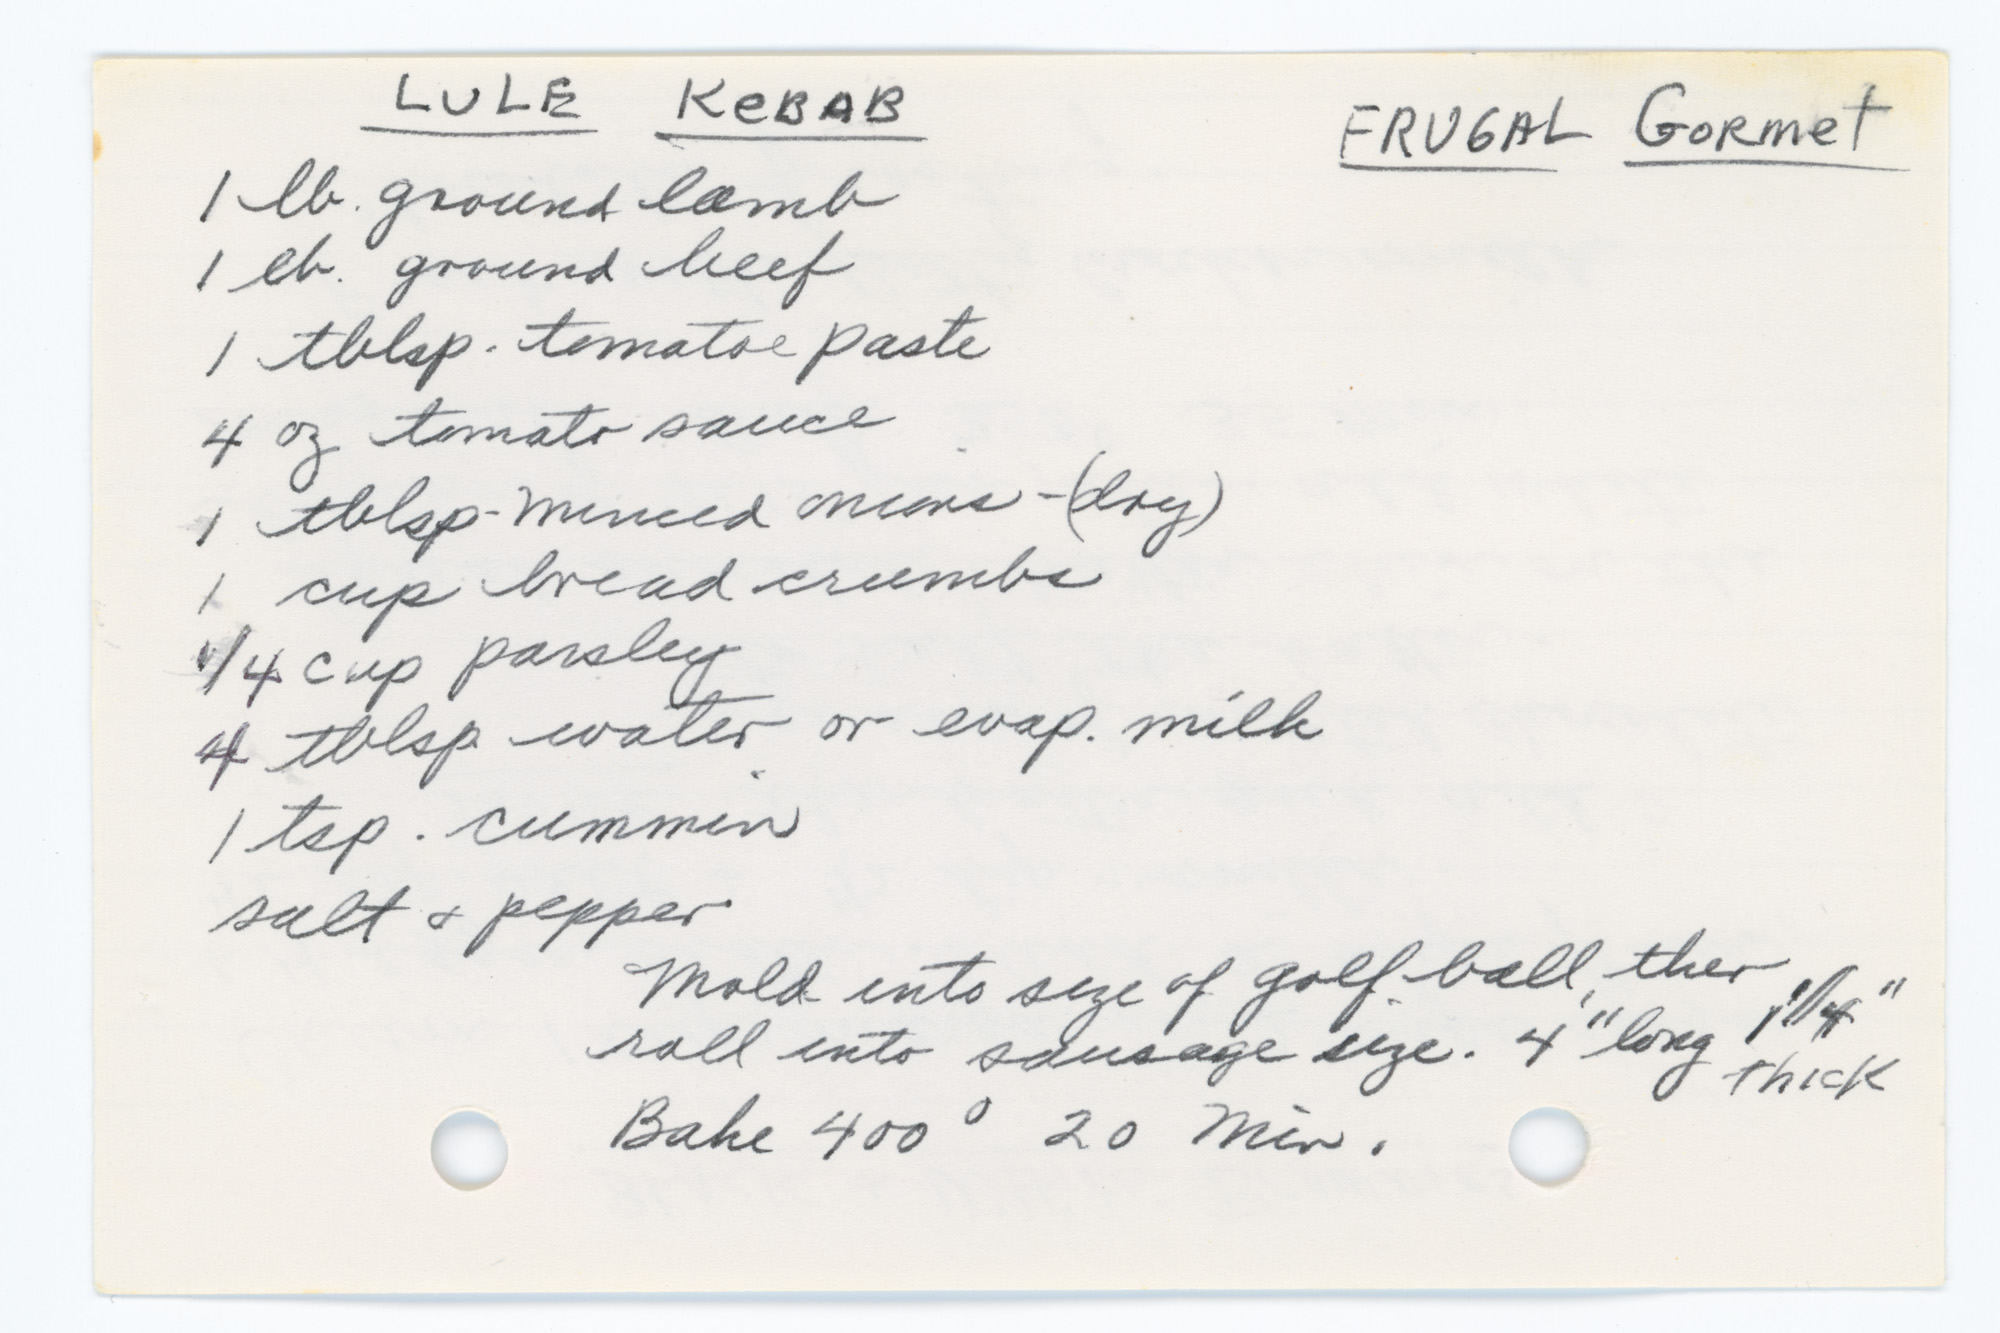 LULE KeBAB
FRUGAL GoRmet
1 lb. ground lamb
1 lb. ground beef
1 tblsp. tomatoe paste
4 oz tomato sauce
1 tblsp - minced onions - (dry)
1 cup bread crumbs
1/4 cup parsley
4 tblsp water or evap. milk
1 tsp. cummin
salt & pepper
Mold into size of golf ball, then
roll into sausage size. 4" long 1 1/4"
thick
Bake 400° 20 Min.